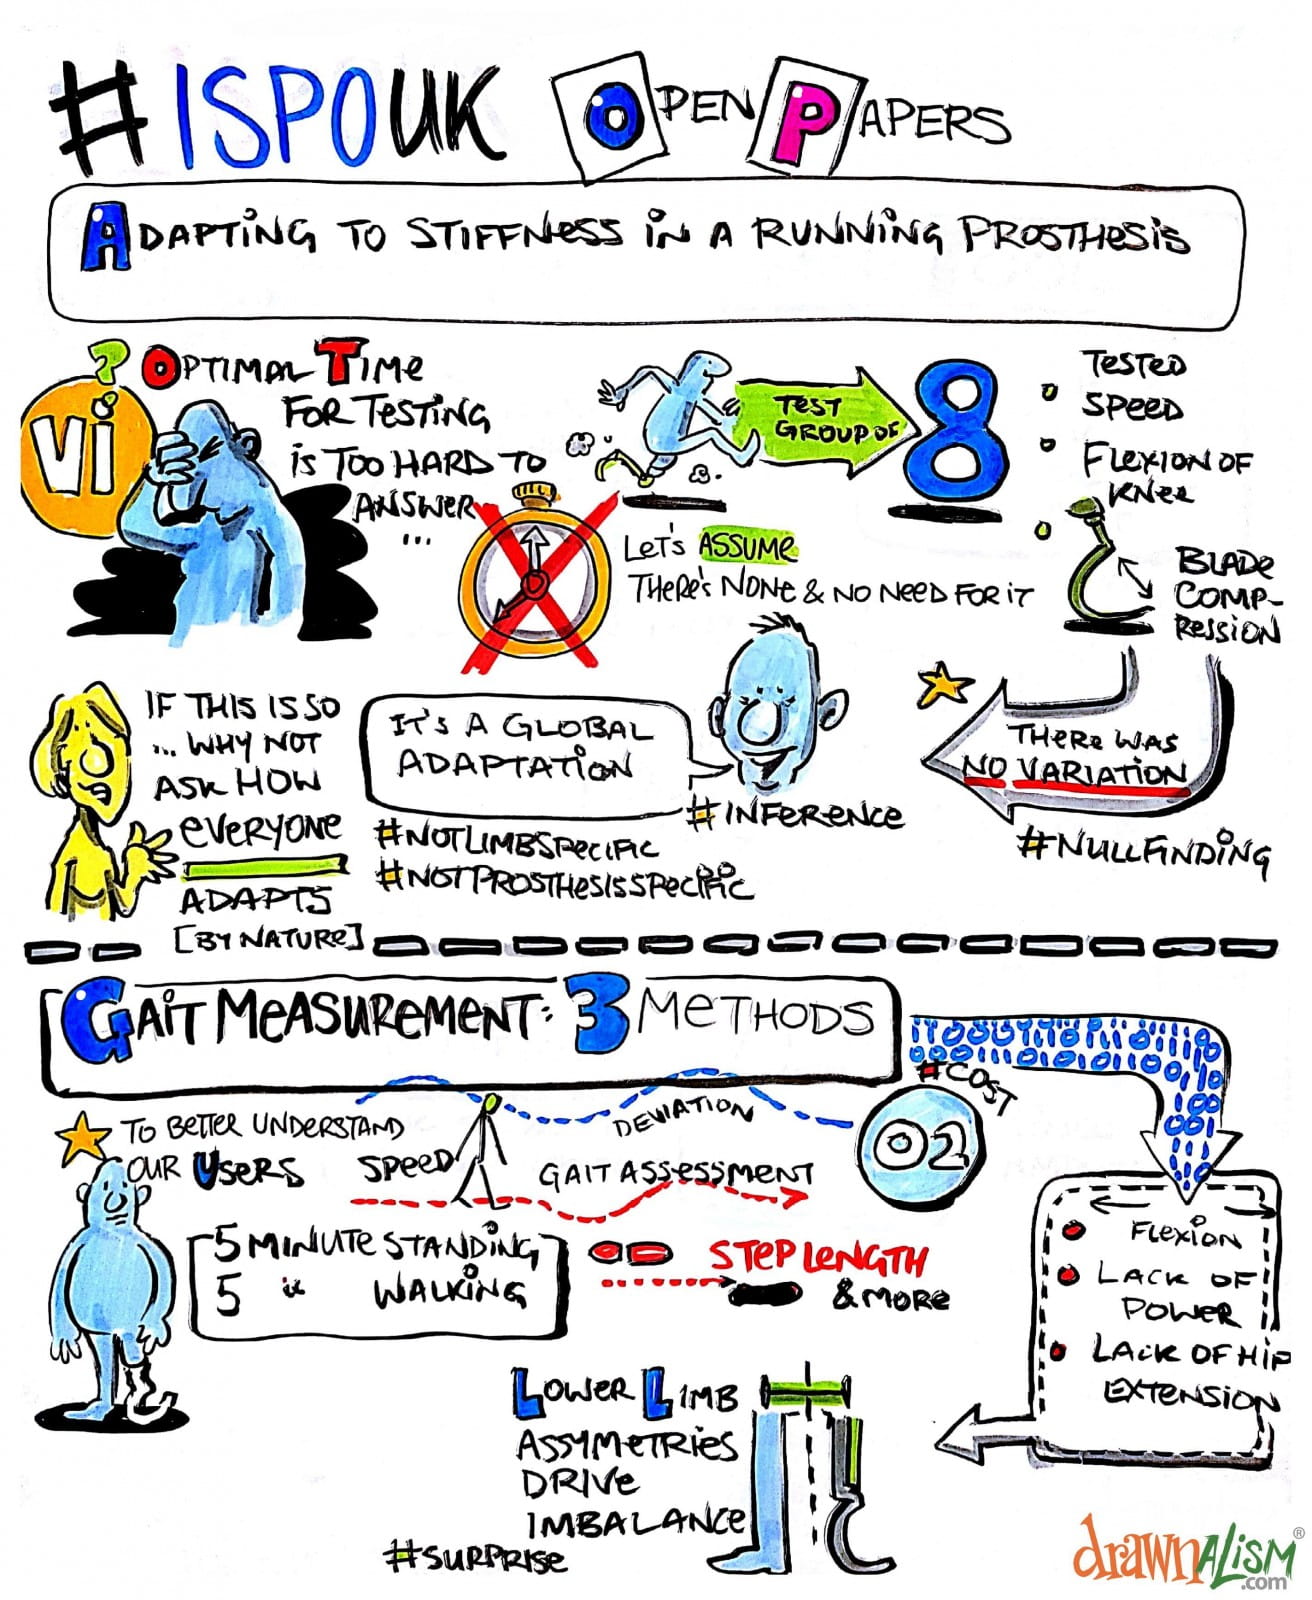 #ISPOUK OPEN PAPERS
ADAPTING TO STIFFNESS IN A RUNNING PROSTHESIS
?
Vi
OPTIMAL TIME
FOR TESTING
IS TOO HARD TO
ANSWER
...
TEST
GROUP OF
8
TESTED
SPEED
FLEXION OF
KNEE
BLADE
COMP-
RESSION
LET'S ASSUME
THERE'S NONE & NO NEED FOR IT
IF THIS IS SO
... WHY NOT
ASK HOW
EVERYONE
ADAPTS
[BY NATURE]
IT'S A GLOBAL
ADAPTATION
#INFERENCE
#NOTLIMBSPECIFIC
#NOTPROSTHESISSPECIFIC
THERE WAS
NO VARIATION
#NULLFINDING
GAIT MEASUREMENT: 3 METHODS
TO BETTER UNDERSTAND
OUR USERS
SPEED
DEVIATION
GAIT ASSESSMENT
#COST
O2
5 MINUTE STANDING
5 " WALKING
STEP LENGTH
& MORE
FLEXION
LACK OF
POWER
LACK OF HIP
EXTENSION
LOWER LIMB
ASSYMETRIES
DRIVE
IMBALANCE
#SURPRISE
drawnALISM®
.com